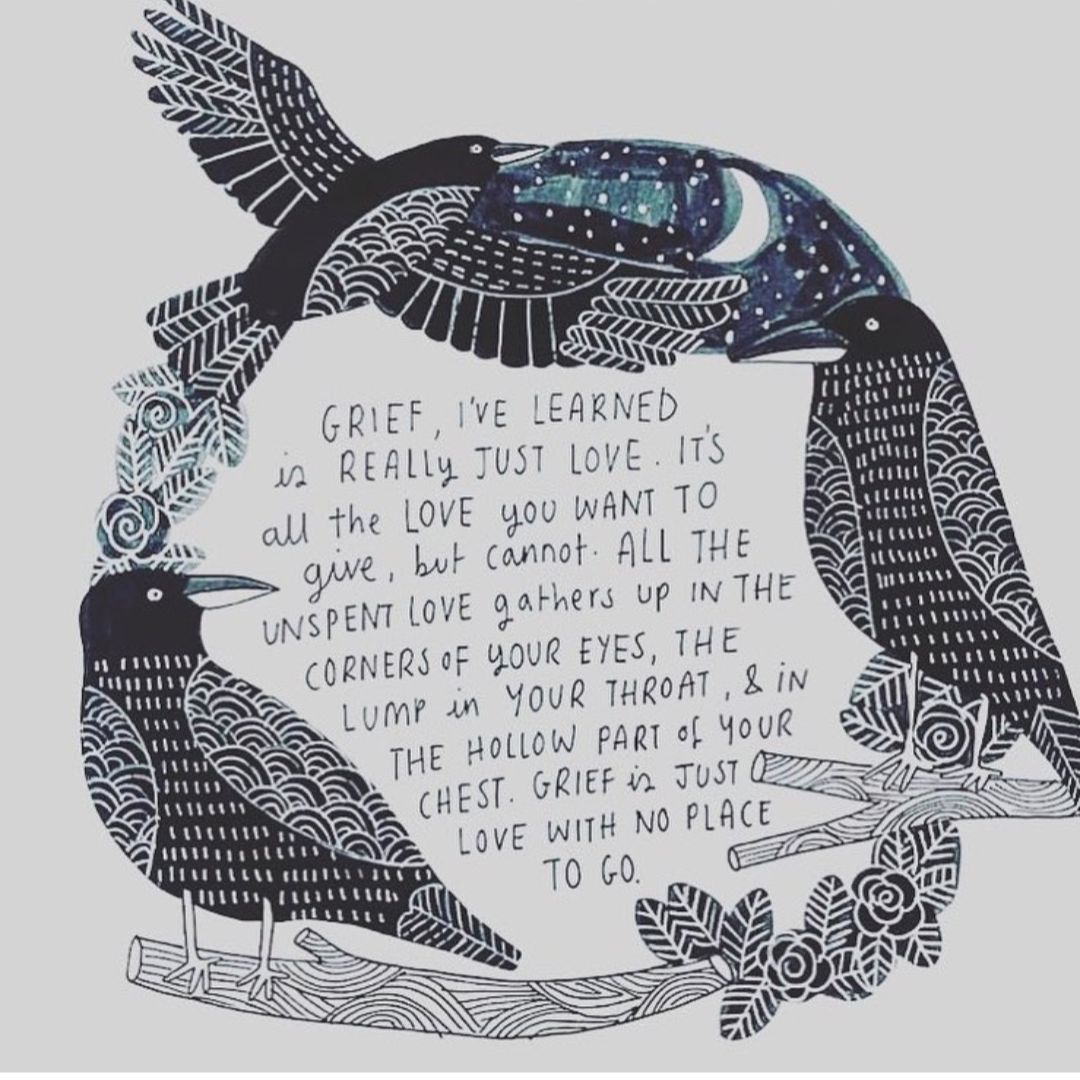 GRIEF, I'VE LEARNED
is REALLy JUST LOVE. IT'S
all the LOVE you WANT TO
give, but cannot. ALL THE
UNSPENT LOVE gathers up IN THE
CORNERS OF YOUR EYES, THE
LUMP in YOUR THROAT, & iN
THE HOLLOW PART of YOUR
CHEST. GRIEF is JUST
LOVE WITH NO PLACE
TO GO.